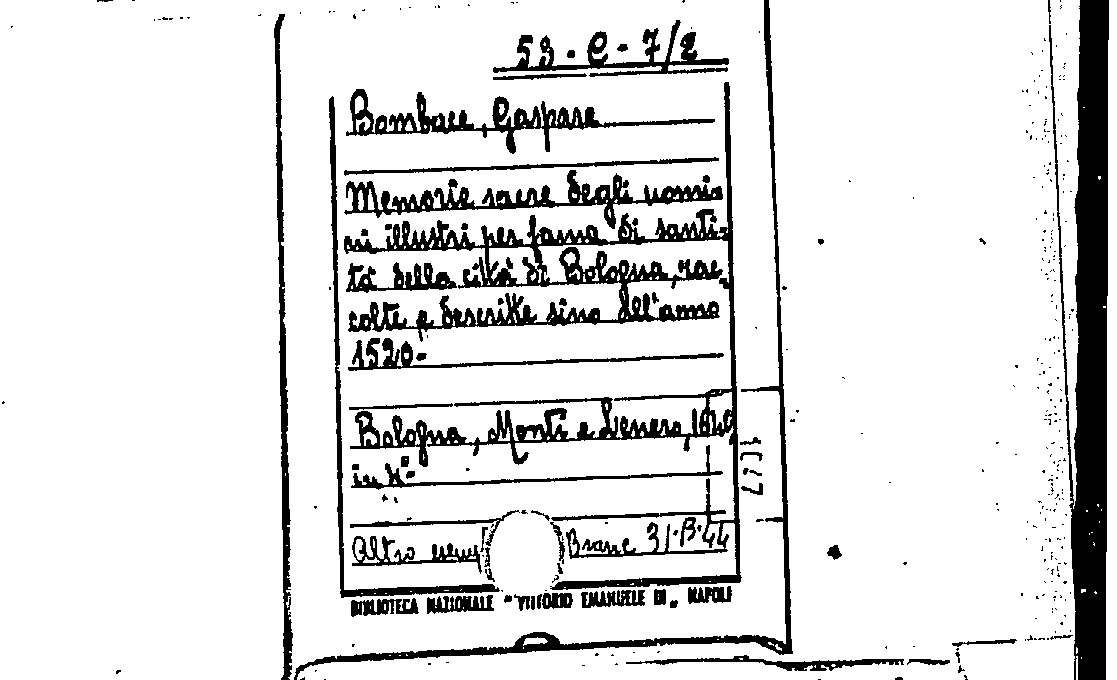 53-C-7/2
Bombace, Gaspare
Memorie sacre degli uomi=
ni illustri per fama di santi=
tà della città di Bologna, rac=
colte e descritte sino all'anno
1520-
Bologna, Monti e Zenero, 1640,
in 4°-
Altro esem Branc 31.B.44
BIBLIOTECA NAZIONALE "VITTORIO EMANUELE III" NAPOLI